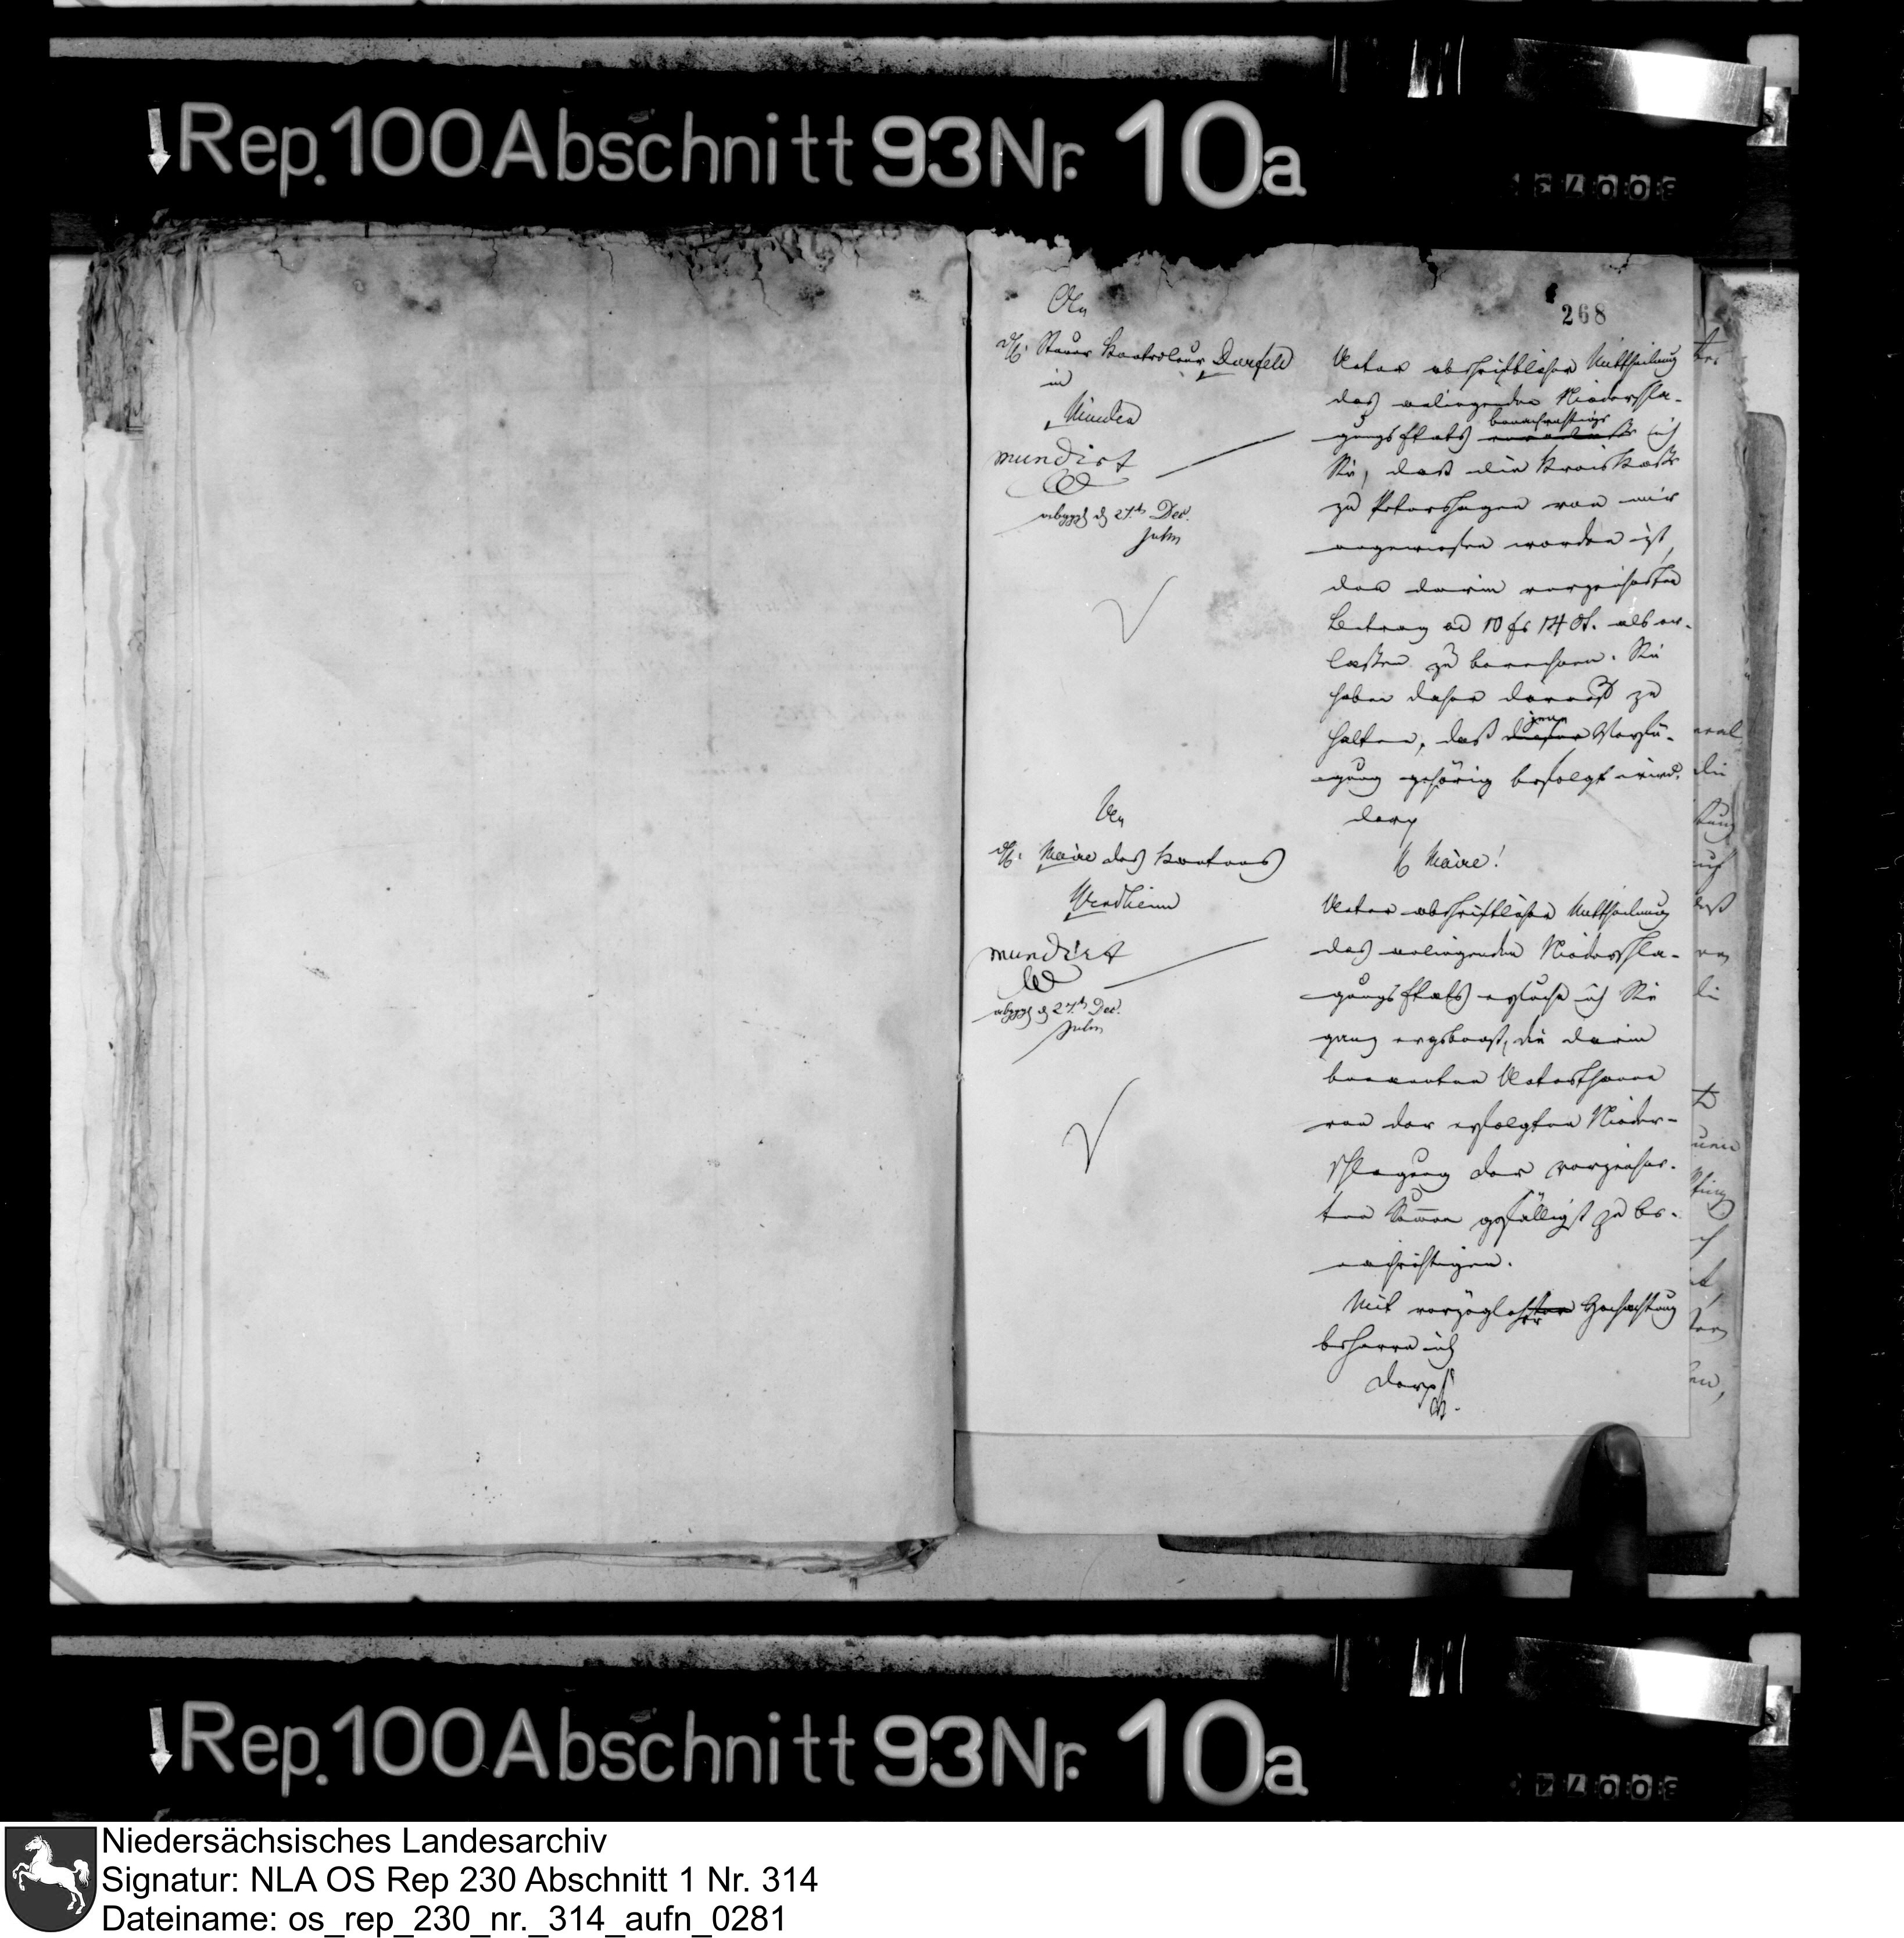 Rep. 100 Abschnitt 93 Nr. 10a
268
An
H. Steuer Kontroleur Darfeld
in
Minden
mundirt
abggg d 27.ten Dec.
Unter abschriftlicher Mittheilung
des anliegenden Niederschla-
gungs Etats benachrichtige ich
Sie, daß die Kreiskasse
zu Petershagen von mir
angewiesen worden ist,
den darin verzeichneten
Betrag ad 10 fr 14 Ct. als er-
lassen zu berechnen. Sie
haben daher darauf zu
halten, daß jene dieser Verfü-
gung gehörig befolgt wird.
An
H. Maire des Kantons
Windheim
mundirt
abggg d 27.ten Dec.
H Maire!
Unter abschriftlicher Mittheilung
des anliegenden Niederschla-
gungs Etats ersuche ich Sie
ganz ergebenst, die darin
benannten Unterthanen
von der erfolgten Nieder-
schlagung der verzeichne-
ten Summen gefälligst zu be-
nachrichtigen.
Mit vorzüglicher Hochachtung
beharre ich
Rep. 100 Abschnitt 93 Nr. 10a
Niedersächsisches Landesarchiv
Signatur: NLA OS Rep 230 Abschnitt 1 Nr. 314
Dateiname: os_rep_230_nr._314_aufn_0281